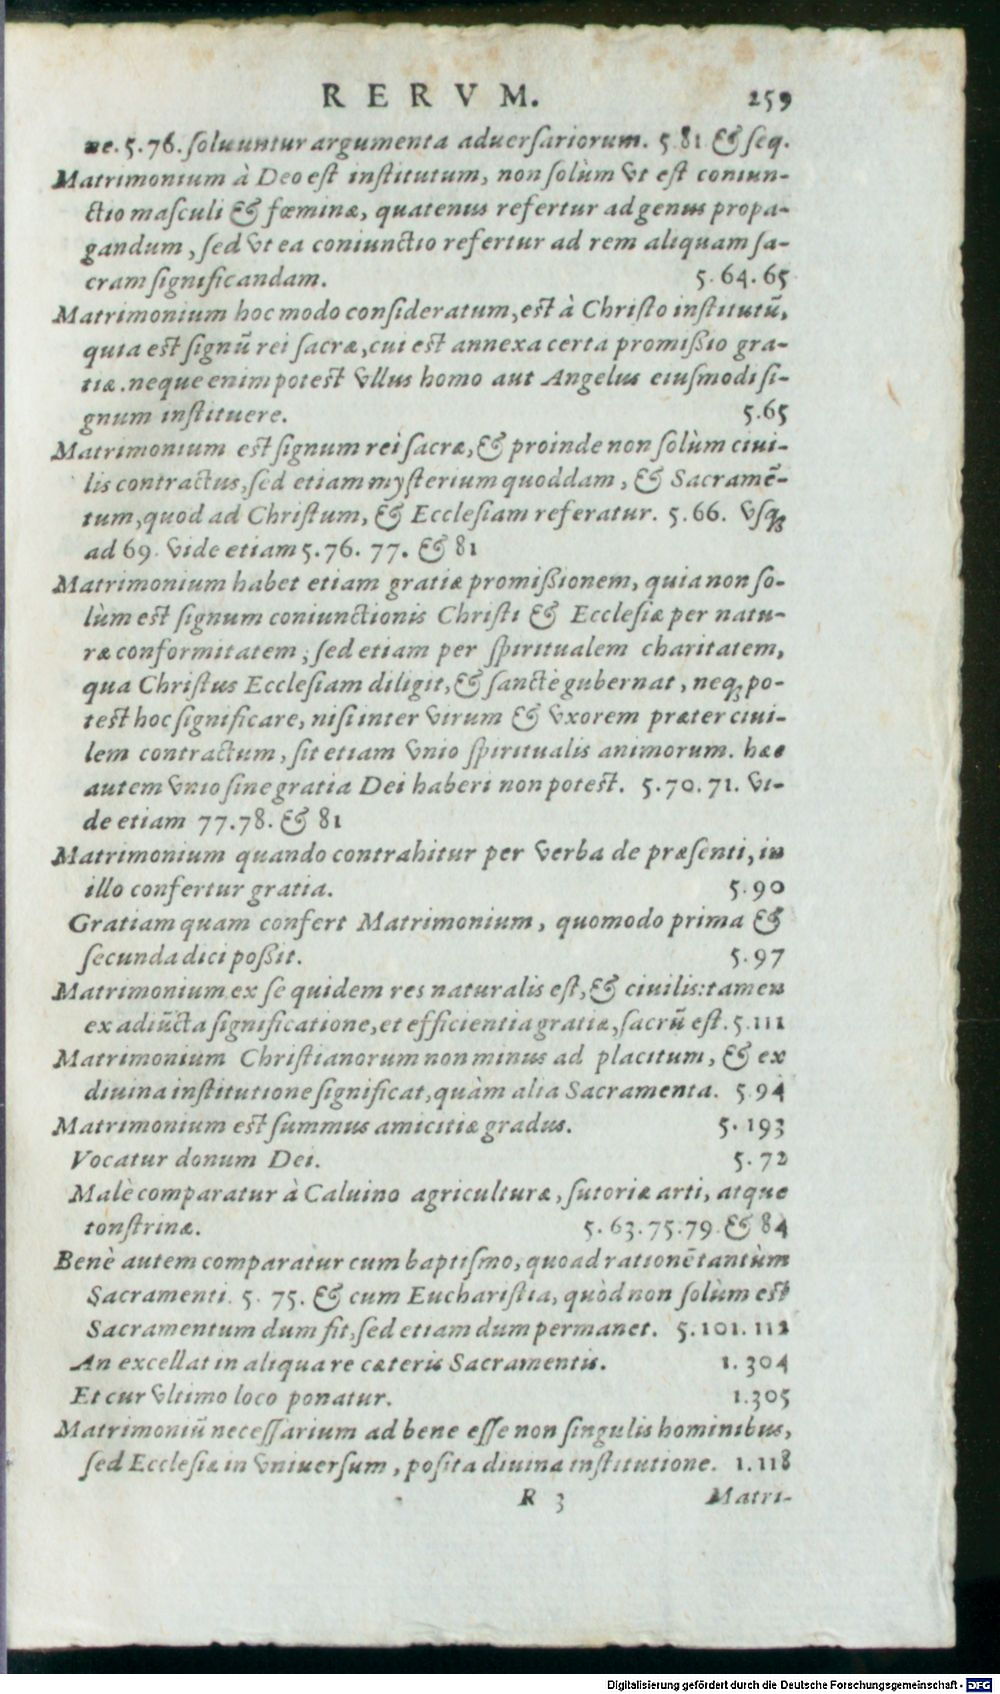 RERVM. 259
ne. 5.76. soluuntur argumenta aduersariorum. 5.81 & seq.
Matrimonium à Deo est institutum, non solùm vt est coniun-
ctio masculi & fœminæ, quatenus refertur ad genus propa-
gandum, sed vt ea coniunctio refertur ad rem aliquam sa-
cram significandam. 5.64.65
Matrimonium hoc modo consideratum, est à Christo institutũ,
quia est signũ rei sacræ, cui est annexa certa promißio gra-
tiæ. neque enim potest vllus homo aut Angelus eiusmodi si-
gnum instituere. 5.65
Matrimonium est signum rei sacræ, & proinde non solùm ciui-
lis contractus, sed etiam mysterium quoddam, & Sacramẽ-
tum, quod ad Christum, & Ecclesiam referatur. 5.66. vsq;
ad 69. vide etiam 5.76. 77. & 81
Matrimonium habet etiam gratiæ promißionem, quia non so-
lùm est signum coniunctionis Christi & Ecclesiæ per natu-
ræ conformitatem; sed etiam per spiritualem charitatem,
qua Christus Ecclesiam diligit, & sanctè gubernat, neq; po-
test hoc significare, nisi inter virum & vxorem præter ciui-
lem contractum, sit etiam vnio spiritualis animorum. hæc
autem vnio sine gratia Dei haberi non potest. 5.70.71. vi-
de etiam 77.78. & 81
Matrimonium quando contrahitur per verba de præsenti, in
illo confertur gratia. 5.90
Gratiam quam confert Matrimonium, quomodo prima &
secunda dici poßit. 5.97
Matrimonium ex se quidem res naturalis est, & ciuilis: tamen
ex adiũcta significatione, et efficientia gratiæ, sacrũ est. 5.111
Matrimonium Christianorum non minus ad placitum, & ex
diuina institutione significat, quàm alia Sacramenta. 5.94
Matrimonium est summus amicitiæ gradus. 5.193
Vocatur donum Dei. 5.72
Malè comparatur à Caluino agriculturæ, sutoriæ arti, atque
tonstrinæ. 5.63.75.79. & 84
Benè autem comparatur cum baptismo, quoad rationẽ tantùm
Sacramenti. 5. 75. & cum Eucharistia, quòd non solùm est
Sacramentum dum fit, sed etiam dum permanet. 5.101.112
An excellat in aliqua re cæteris Sacramentis. 1.304
Et cur vltimo loco ponatur. 1.305
Matrimoniũ necessarium ad bene esse non singulis hominibus,
sed Ecclesiæ in vniuersum, posita diuina institutione. 1.118
R 3 Matri-
Digitalisierung gefördert durch die Deutsche Forschungsgemeinschaft - DFG